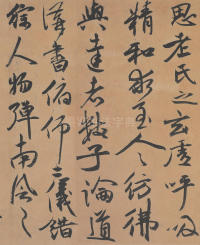 思老氏之玄虚呼吸
精和求至人之彷彿
與達者數子論道
講書俯仰二儀錯
綜人物彈南風之